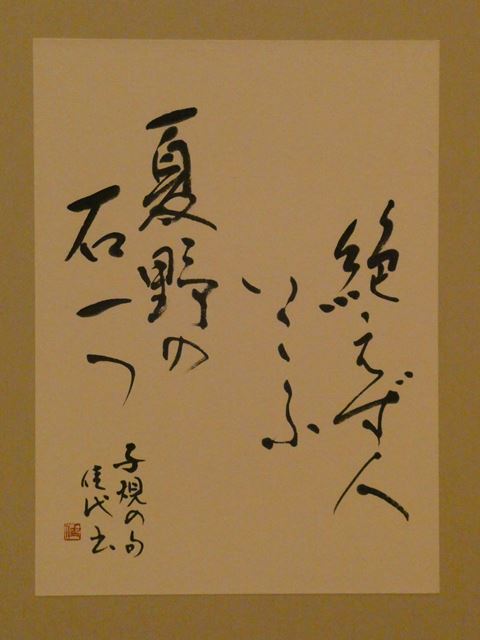 絶えず人
いこふ
夏野の
石一つ
子規の句
佳代書